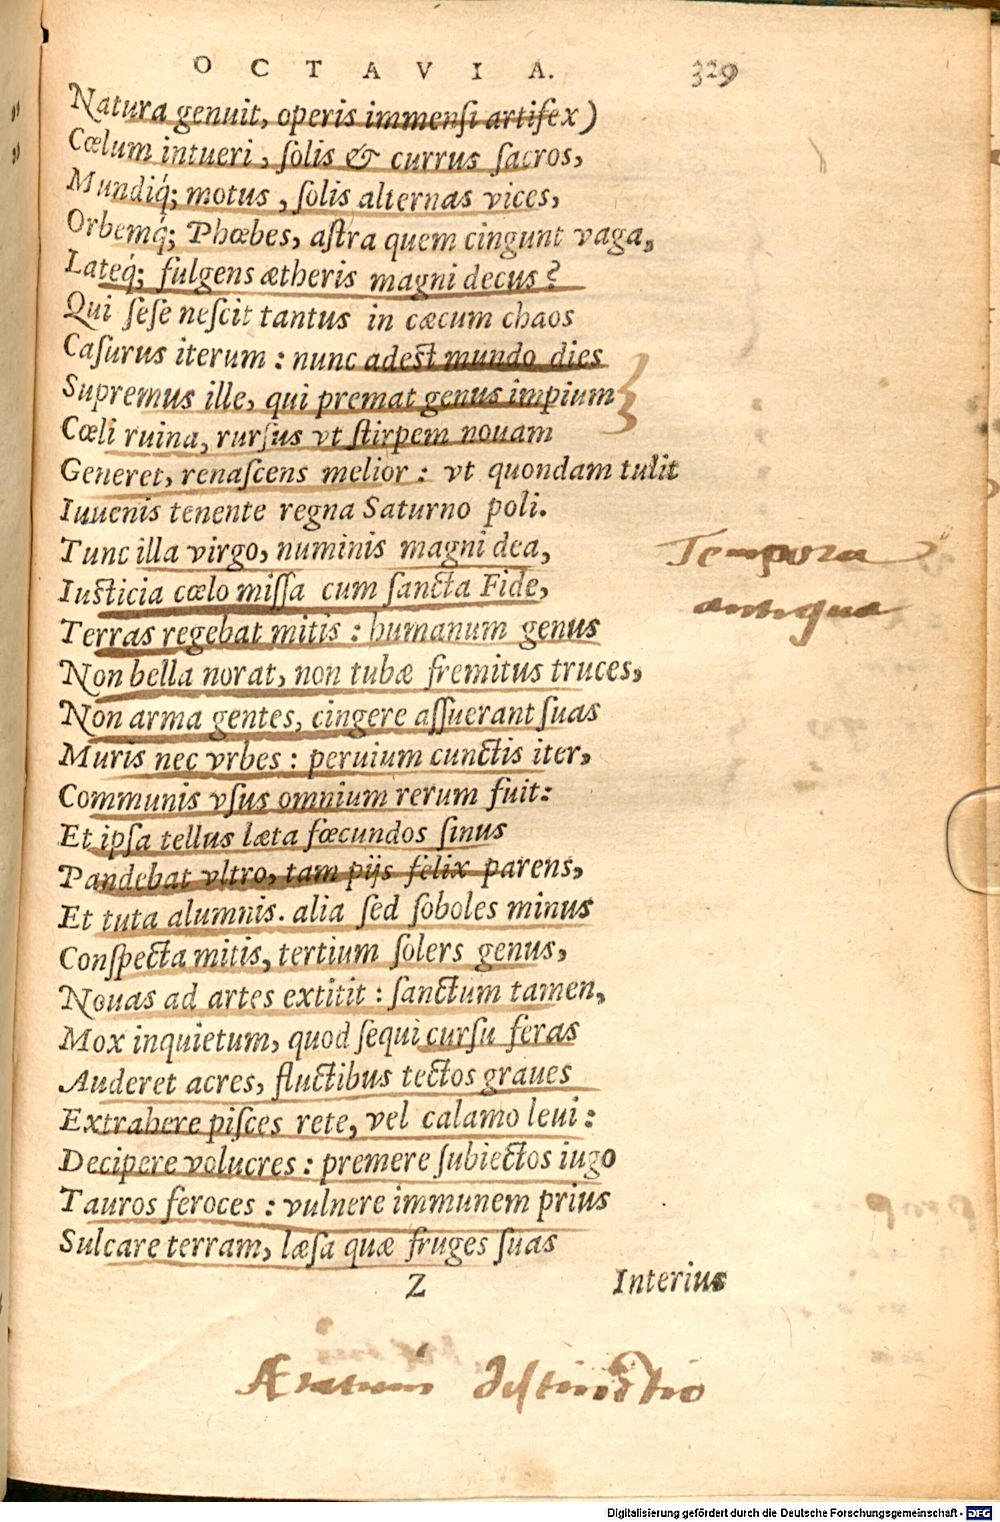 OCTAVIA. 329
Natura genuit, operis immenſi artifex)
Cœlum intueri, ſolis & currus ſacros,
Mundiq́; motus, ſolis alternas vices,
Orbemq́; Phœbes, aſtra quem cingunt vaga,
Lateq́; fulgens ætheris magni decus?
Qui ſeſe neſcit tantus in cæcum chaos
Caſurus iterum: nunc adest mundo dies
Supremus ille, qui premat genus impium
Cœli ruina, rurſus vt ſtirpem nouam
Generet, renaſcens melior: vt quondam tulit
Iuuenis tenente regna Saturno poli.
Tunc illa virgo, numinis magni dea,
Iusticia cœlo miſſa cum ſancta Fide,
Terras regebat mitis: humanum genus
Non bella norat, non tubæ fremitus truces,
Non arma gentes, cingere aſſuerant ſuas
Muris nec vrbes: peruium cunctis iter,
Communis vſus omnium rerum fuit:
Et ipſa tellus læta fœcundos ſinus
Pandebat vltro, tam pijs felix parens,
Et tuta alumnis. alia ſed ſoboles minus
Conſpecta mitis, tertium ſolers genus,
Nouas ad artes extitit: ſanctum tamen,
Mox inquietum, quod ſequi curſu feras
Auderet acres, fluctibus tectos graues
Extrahere piſces rete, vel calamo leui:
Decipere volucres: premere ſubiectos iugo
Tauros feroces: vulnere immunem prius
Sulcare terram, læſa quæ fruges ſuas
Z Interius
Tempora
antiqua
Ætatum diſtinctio
Digitalisierung gefördert durch die Deutsche Forschungsgemeinschaft - DFG